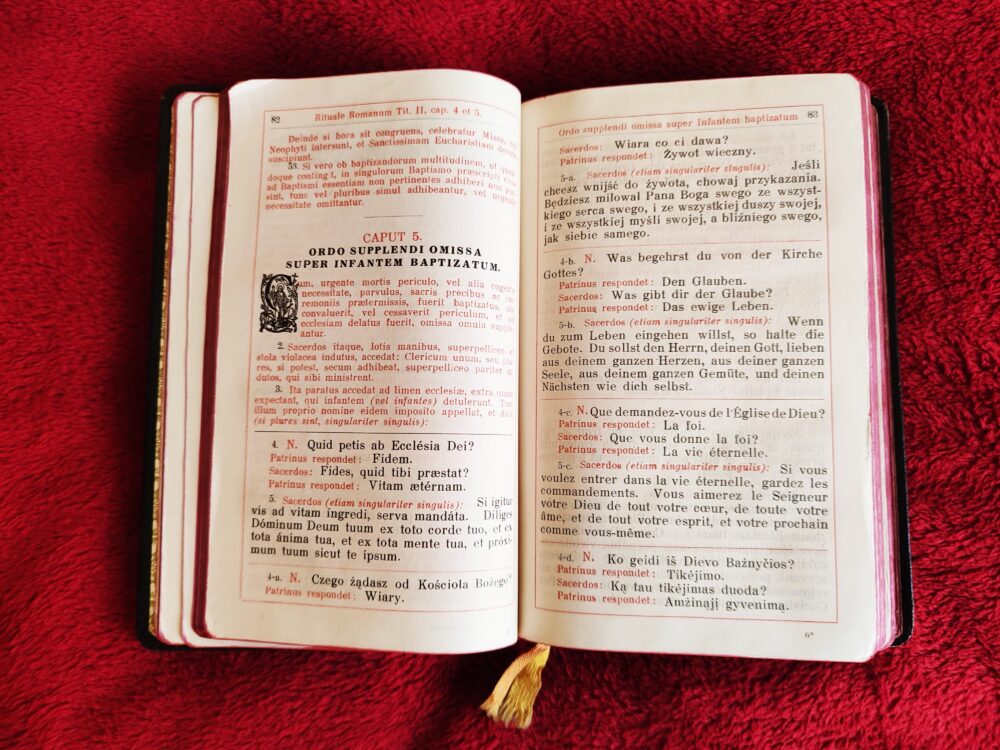 82
Rituale Romanum Tit. II, cap. 4 et 5.
Deinde si hora sit congruens, celebratur Missa, cui
Neophyti intersunt, et Sanctissimam Eucharistiam devote
suscipiunt.
53. Si vero ob baptizandorum multitudinem, ut quan-
doque contingit, in singulorum Baptismo præscripti ritus
ad Baptismi essentiam non pertinentes adhiberi non pos-
sint, tunc vel pluribus simul adhibeantur, vel urgente
necessitate omittantur.
CAPUT 5.
ORDO SUPPLENDI OMISSA
SUPER INFANTEM BAPTIZATUM.
Cum, urgente mortis periculo, vel alia cogente
necessitate, parvulus, sacris precibus ac cæ-
remoniis prætermissis, fuerit baptizatus, ubi
convaluerit, vel cessaverit periculum, et ad
ecclesiam delatus fuerit, omissa omnia supple-
antur.
2. Sacerdos itaque, lotis manibus, superpelliceo et
stola violacea indutus, accedat: Clericum unum, seu plu-
res, si potest, secum adhibeat, superpelliceo pariter in-
dutos, qui sibi ministrent.
3. Ita paratus accedat ad limen ecclesiæ, extra quam
expectant, qui infantem (vel infantes) detulerunt. Tum
illum proprio nomine eidem imposito appellat, et dicit
(si plures sint, singulariter singulis):
4. N. Quid petis ab Ecclésia Dei?
Patrinus respondet: Fidem.
Sacerdos: Fides, quid tibi præstat?
Patrinus respondet: Vitam ætérnam.
5. Sacerdos (etiam singulariter singulis): Si igitur
vis ad vitam íngredi, serva mandáta. Díliges
Dóminum Deum tuum ex toto corde tuo, et ex
tota ánima tua, et ex tota mente tua, et próxi-
mum tuum sicut te ipsum.
4-a. N. Czego żądasz od Kościoła Bożego?
Patrinus respondet: Wiary.
Ordo supplendi omissa super infantem baptizatum
83
Sacerdos: Wiara co ci dawa?
Patrinus respondet: Żywot wieczny.
5-a. Sacerdos (etiam singulariter singulis): Jeśli
chcesz wnijść do żywota, chowaj przykazania.
Będziesz miłował Pana Boga swego ze wszyst-
kiego serca swego, i ze wszystkiej duszy swojej,
i ze wszystkiej myśli swojej, a bliźniego swego,
jak siebie samego.
4-b. N. Was begehrst du von der Kirche
Gottes?
Patrinus respondet: Den Glauben.
Sacerdos: Was gibt dir der Glaube?
Patrinus respondet: Das ewige Leben.
5-b. Sacerdos (etiam singulariter singulis): Wenn
du zum Leben eingehen willst, so halte die
Gebote. Du sollst den Herrn, deinen Gott, lieben
aus deinem ganzen Herzen, aus deiner ganzen
Seele, aus deinem ganzen Gemüte, und deinen
Nächsten wie dich selbst.
4-c. N. Que demandez-vous de l'Église de Dieu?
Patrinus respondet: La foi.
Sacerdos: Que vous donne la foi?
Patrinus respondet: La vie éternelle.
5-c. Sacerdos (etiam singulariter singulis): Si vous
voulez entrer dans la vie éternelle, gardez les
commandements. Vous aimerez le Seigneur
votre Dieu de tout votre cœur, de toute votre
âme, et de tout votre esprit, et votre prochain
comme vous-même.
4-d. N. Ko geidi iš Dievo Bažnyčios?
Patrinus respondet: Tikėjimo.
Sacerdos: Ką tau tikėjimas duoda?
Patrinus respondet: Amžinąjį gyvenimą.
6*